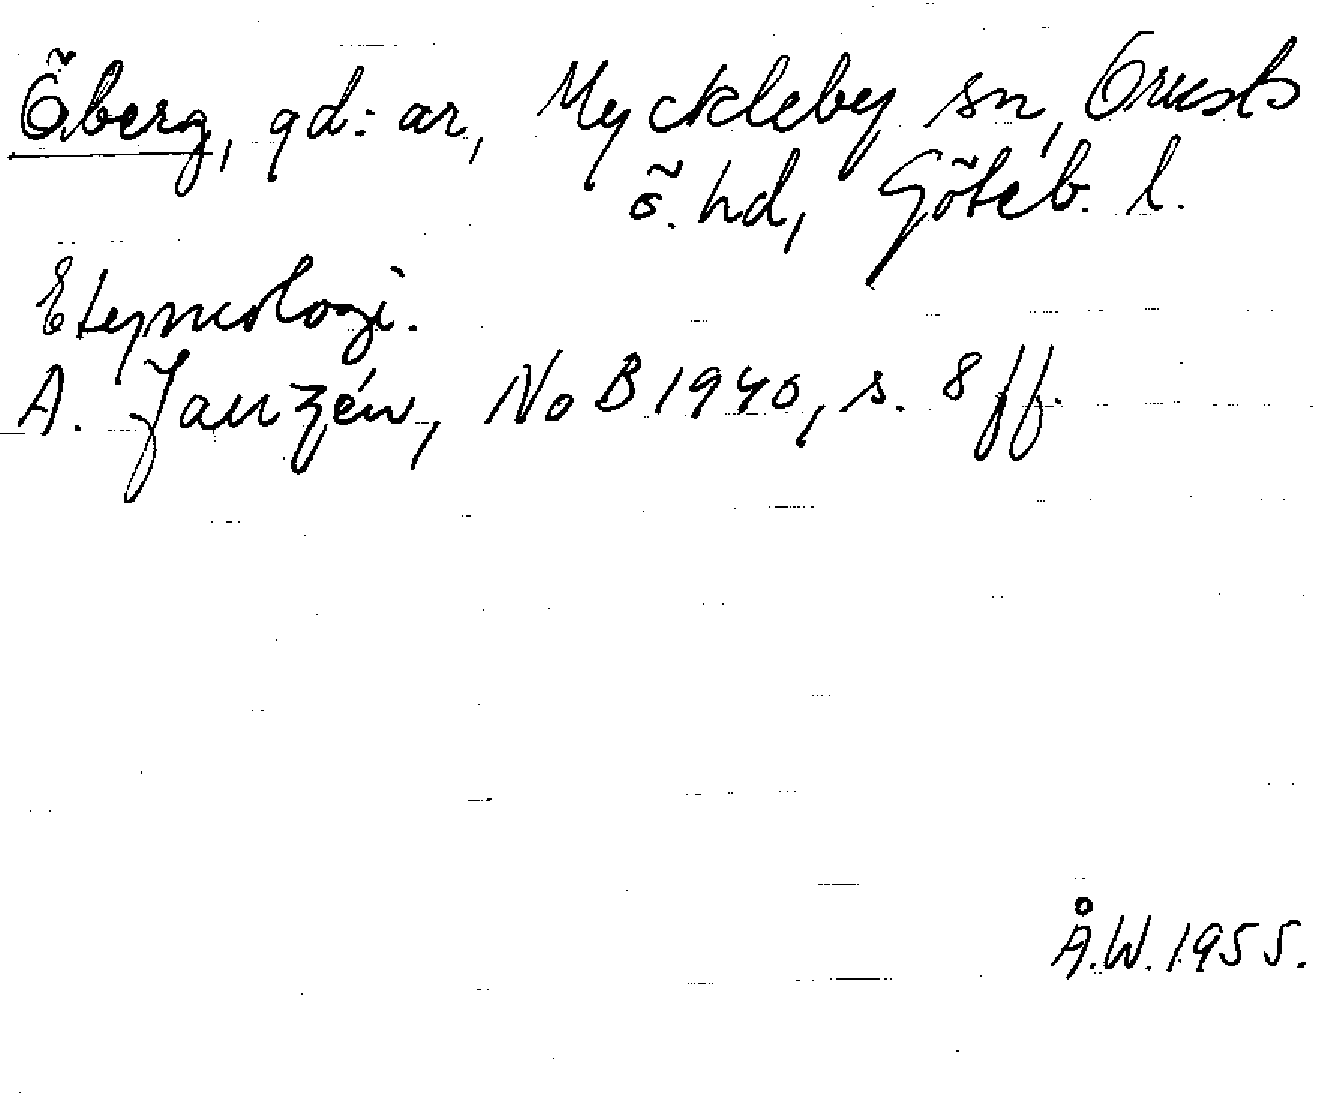 Öberg, gd:ar, Myckleby sn, Orusts
ö. hd, Göteb. l.
Etymologi.
A. Janzén, NoB 1940, s. 8 ff.
Å.W. 1955.